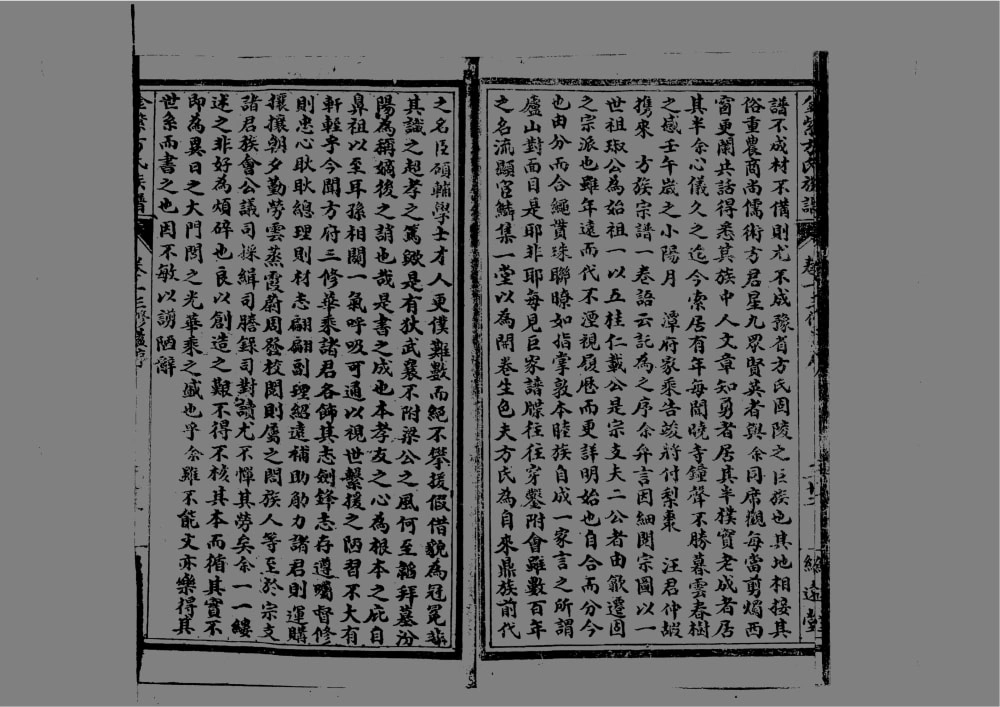 譜不成材不借則尤不成豫省方氏固陵之巨族也其地相接其
俗重農商尚儒術方君星九眾賢英者與余同席觀每當剪燭西
窗更闌共話得悉其族中人文章知勇者居其半樸實老成者居
其半余心儀久之迄今索居有年每聞曉寺鐘聲不勝暮雲春樹
之感壬午歲之小陽月 潭府家乘告竣將付梨棗 汪君仲嘏
攜來 方族宗譜一卷語云託為之序余弁言因細閱宗圖以一
世祖琡公為始祖一以五桂仁載公是宗支夫二公者由歙遷固
之宗派也雖年遠而代不湮視履歷而更詳明始也自合而分今
也由分而合繩貫珠聯瞭如指掌敦本睦族自成一家言之所謂
廬山對面目是耶非耶每見巨家譜牒往往穿鑿附會雖數百年
之名流顯宦鱗集一堂以為開卷生色夫方氏為自來鼎族前代
之名臣碩輔學士才人更僕難數而絕不攀援假借貌為冠冕非
其識之超孝之篤歟是有狄武襄不附梁公之風何至韜拜墓汾
陽為稱嫡後之誚也哉是書之成也本孝友之心為根本之庇自
鼻祖以至耳孫相關一氣呼吸可通以視世繫援之陋習不大有
軒輊乎今聞方府三修華乘諸君各飾其志劍鋒志存遵囑督修
則忠心耿耿總理則材志翩翩副理紹遠補助勷力諸君則運購
攘攘朝夕勤勞雲蒸霞蔚周發校閱則屬之閤族人等至於宗支
諸君族會公議司採緝司謄錄司對讀尤不憚其勞矣余一一縷
述之非好為煩碎也良以創造之艱不得不核其本而循其實不
即為異日之大門閭之光華乘之盛也乎余雖不能文亦樂得其
世系而書之也因不敏以謭陋辭